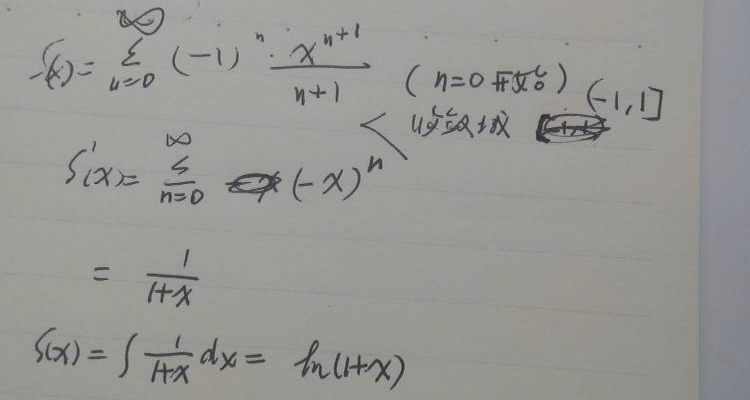 S(x) = ∑_{n=0}^{∞} (-1)^n · x^{n+1}/(n+1) (n=0 开始) (-1,1]
收敛域
S'(x) = ∑_{n=0}^{∞} (-x)^n
= 1/(1+x)
S(x) = ∫ 1/(1+x) dx = ln(1+x)